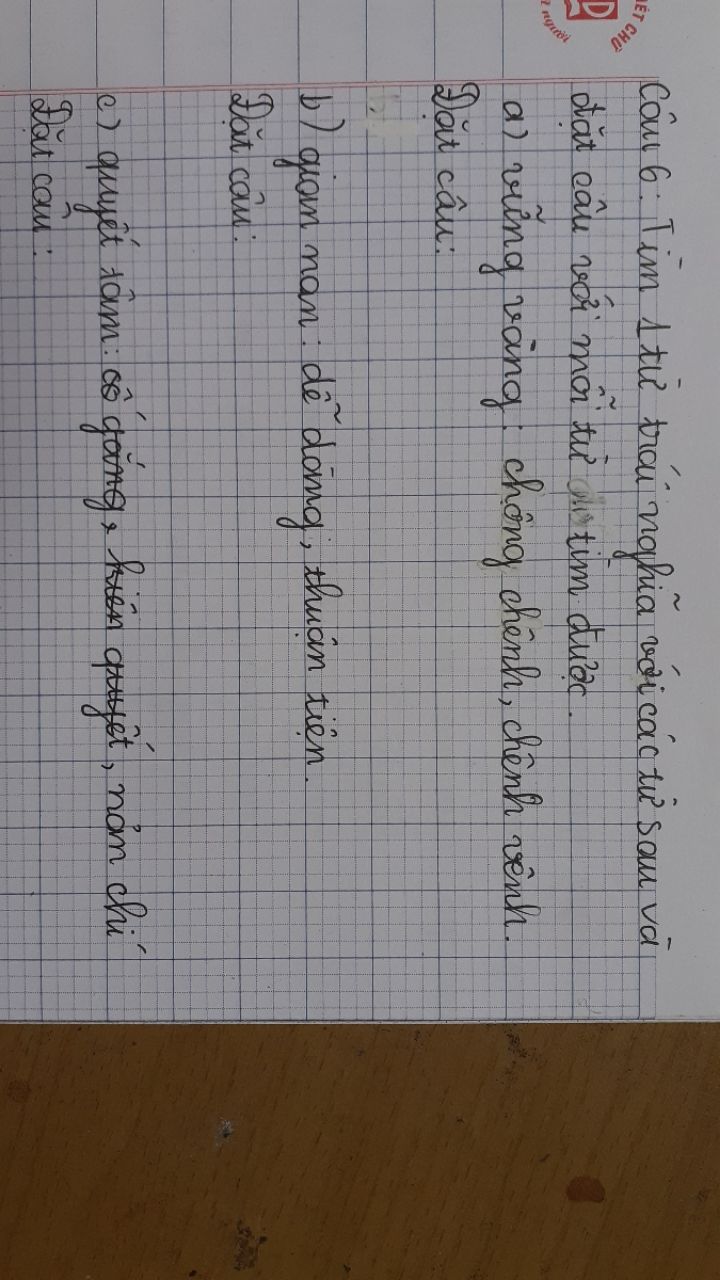 IẾT CHỮ
người
Câu 6: Tìm 1 từ trái nghĩa với các từ sau và
đặt câu với mỗi từ tìm được.
a) vững vàng: chông chênh, chênh vênh.
Đặt câu:
b) gian nan: dễ dàng, thuận tiện.
Đặt câu:
c) quyết tâm: cố gắng, kiên quyết, nản chí
Đặt câu: